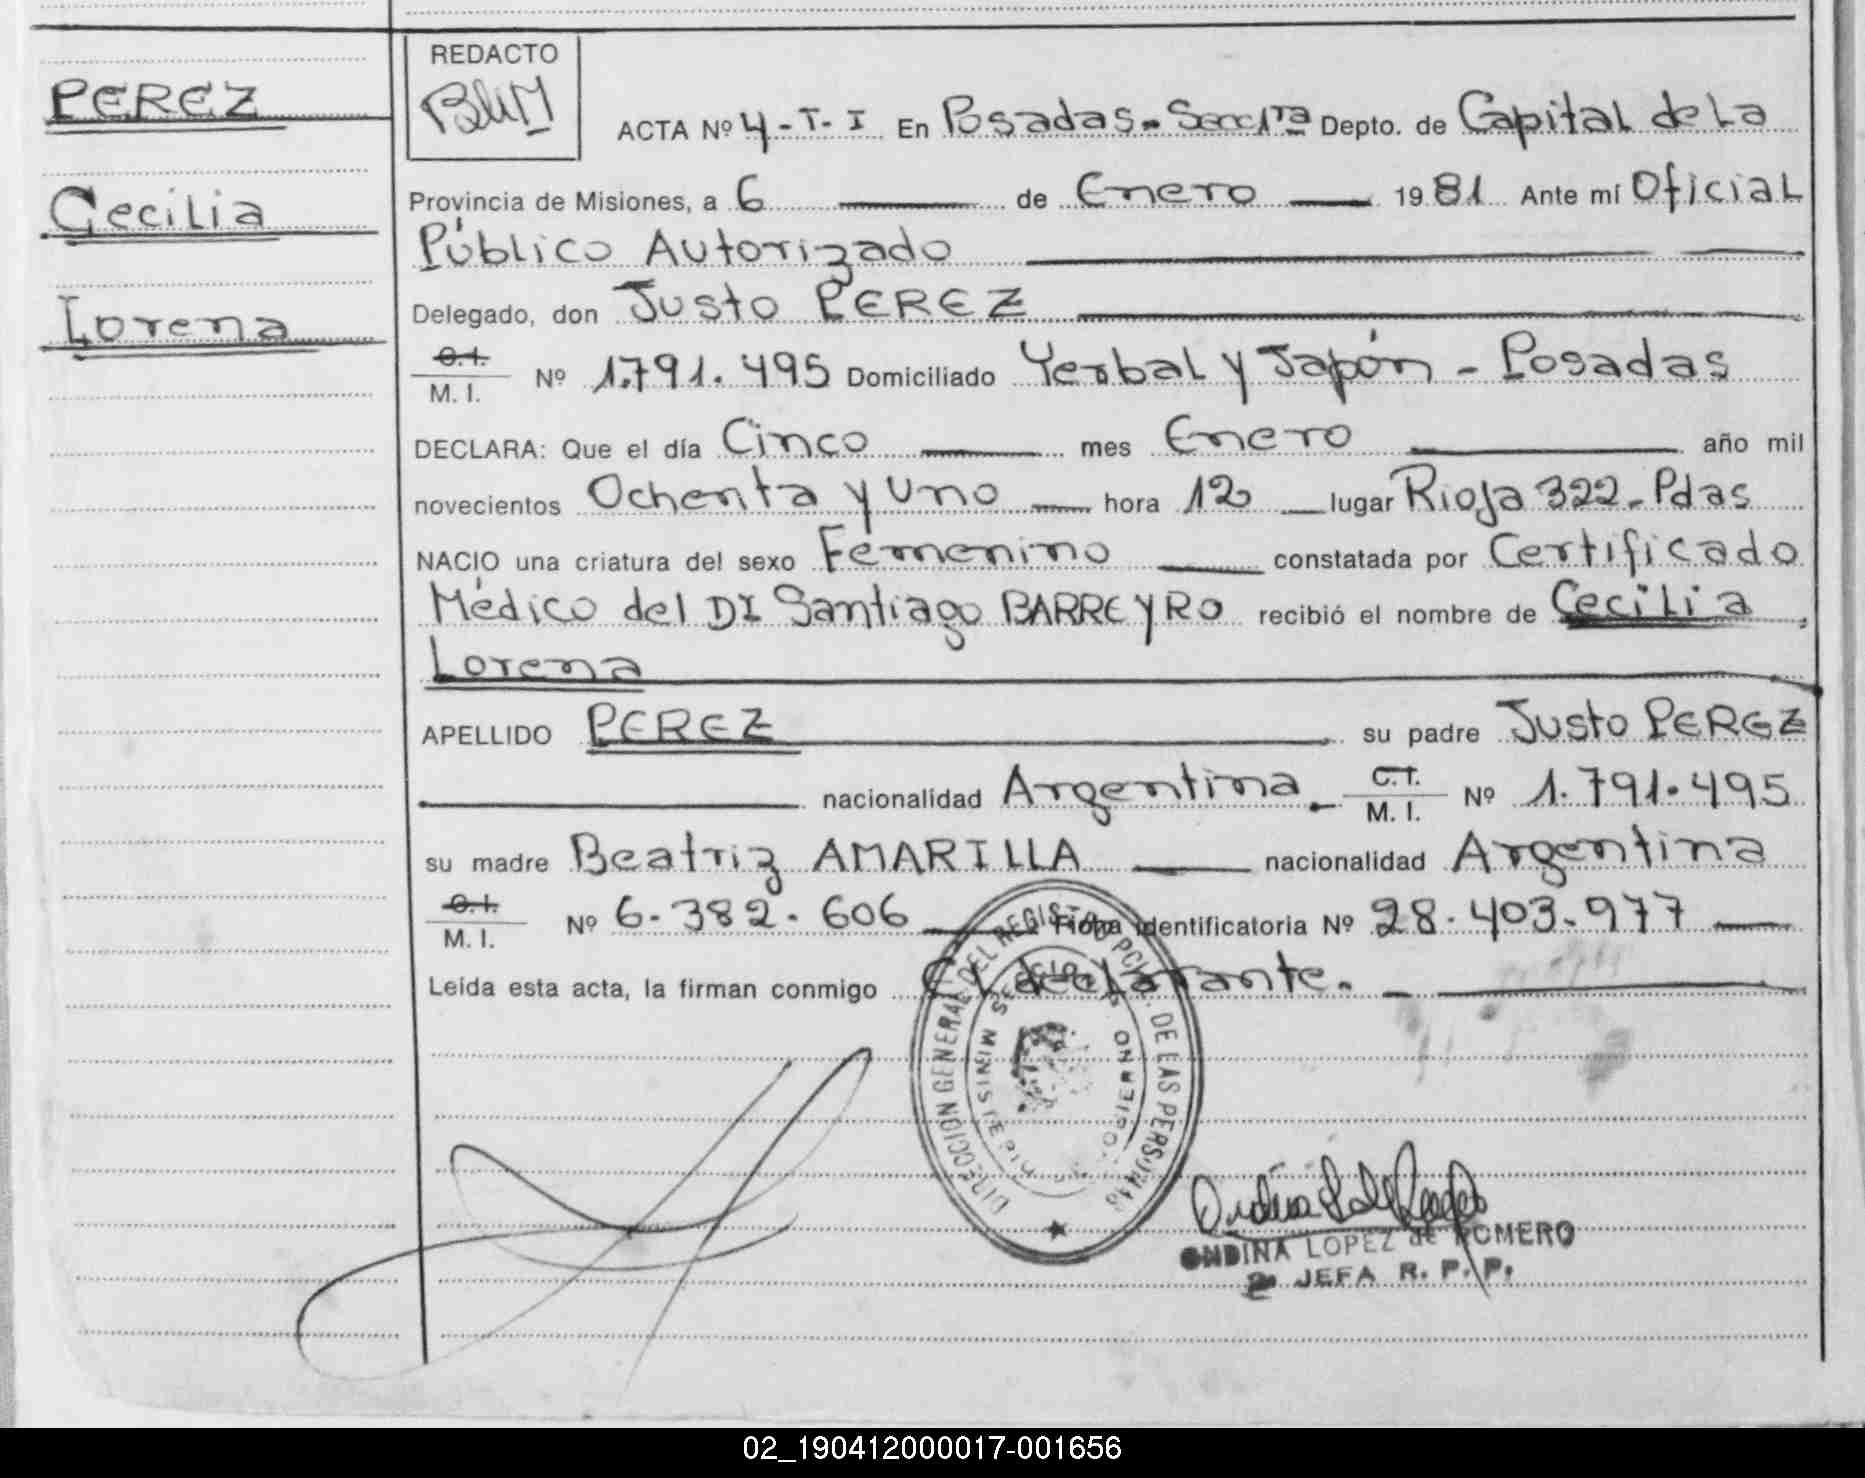 PEREZ
Cecilia
Lorena
REDACTO
ACTA Nº 4-T-I En Posadas-Secc 1ra Depto. de Capital de La
Provincia de Misiones, a 6 de Enero 1981 Ante mí Oficial
Público Autorizado
Delegado, don Justo PEREZ
C.I. M.I. Nº 1.791.495 Domiciliado Yerbal y Japón - Posadas
DECLARA: Que el día Cinco mes Enero año mil
novecientos Ochenta y Uno hora 12 lugar Rioja 322-Pdas
NACIO una criatura del sexo Femenino constatada por Certificado
Médico del Dr Santiago BARREYRO recibió el nombre de Cecilia
Lorena
APELLIDO PEREZ su padre Justo PEREZ
nacionalidad Argentina. C.I. M.I. Nº 1.791.495
su madre Beatriz AMARILLA nacionalidad Argentina
C.I. M.I. Nº 6.382.606 Ficha identificatoria Nº 28.403.977
Leída esta acta, la firman conmigo el declarante.
DIRECCION GENERAL DEL REGISTRO PCIAL. DE LAS PERSONAS
MINISTERIO GOBIERNO
ONDINA LOPEZ de ROMERO
2º JEFA R. P. P.
02_190412000017-001656